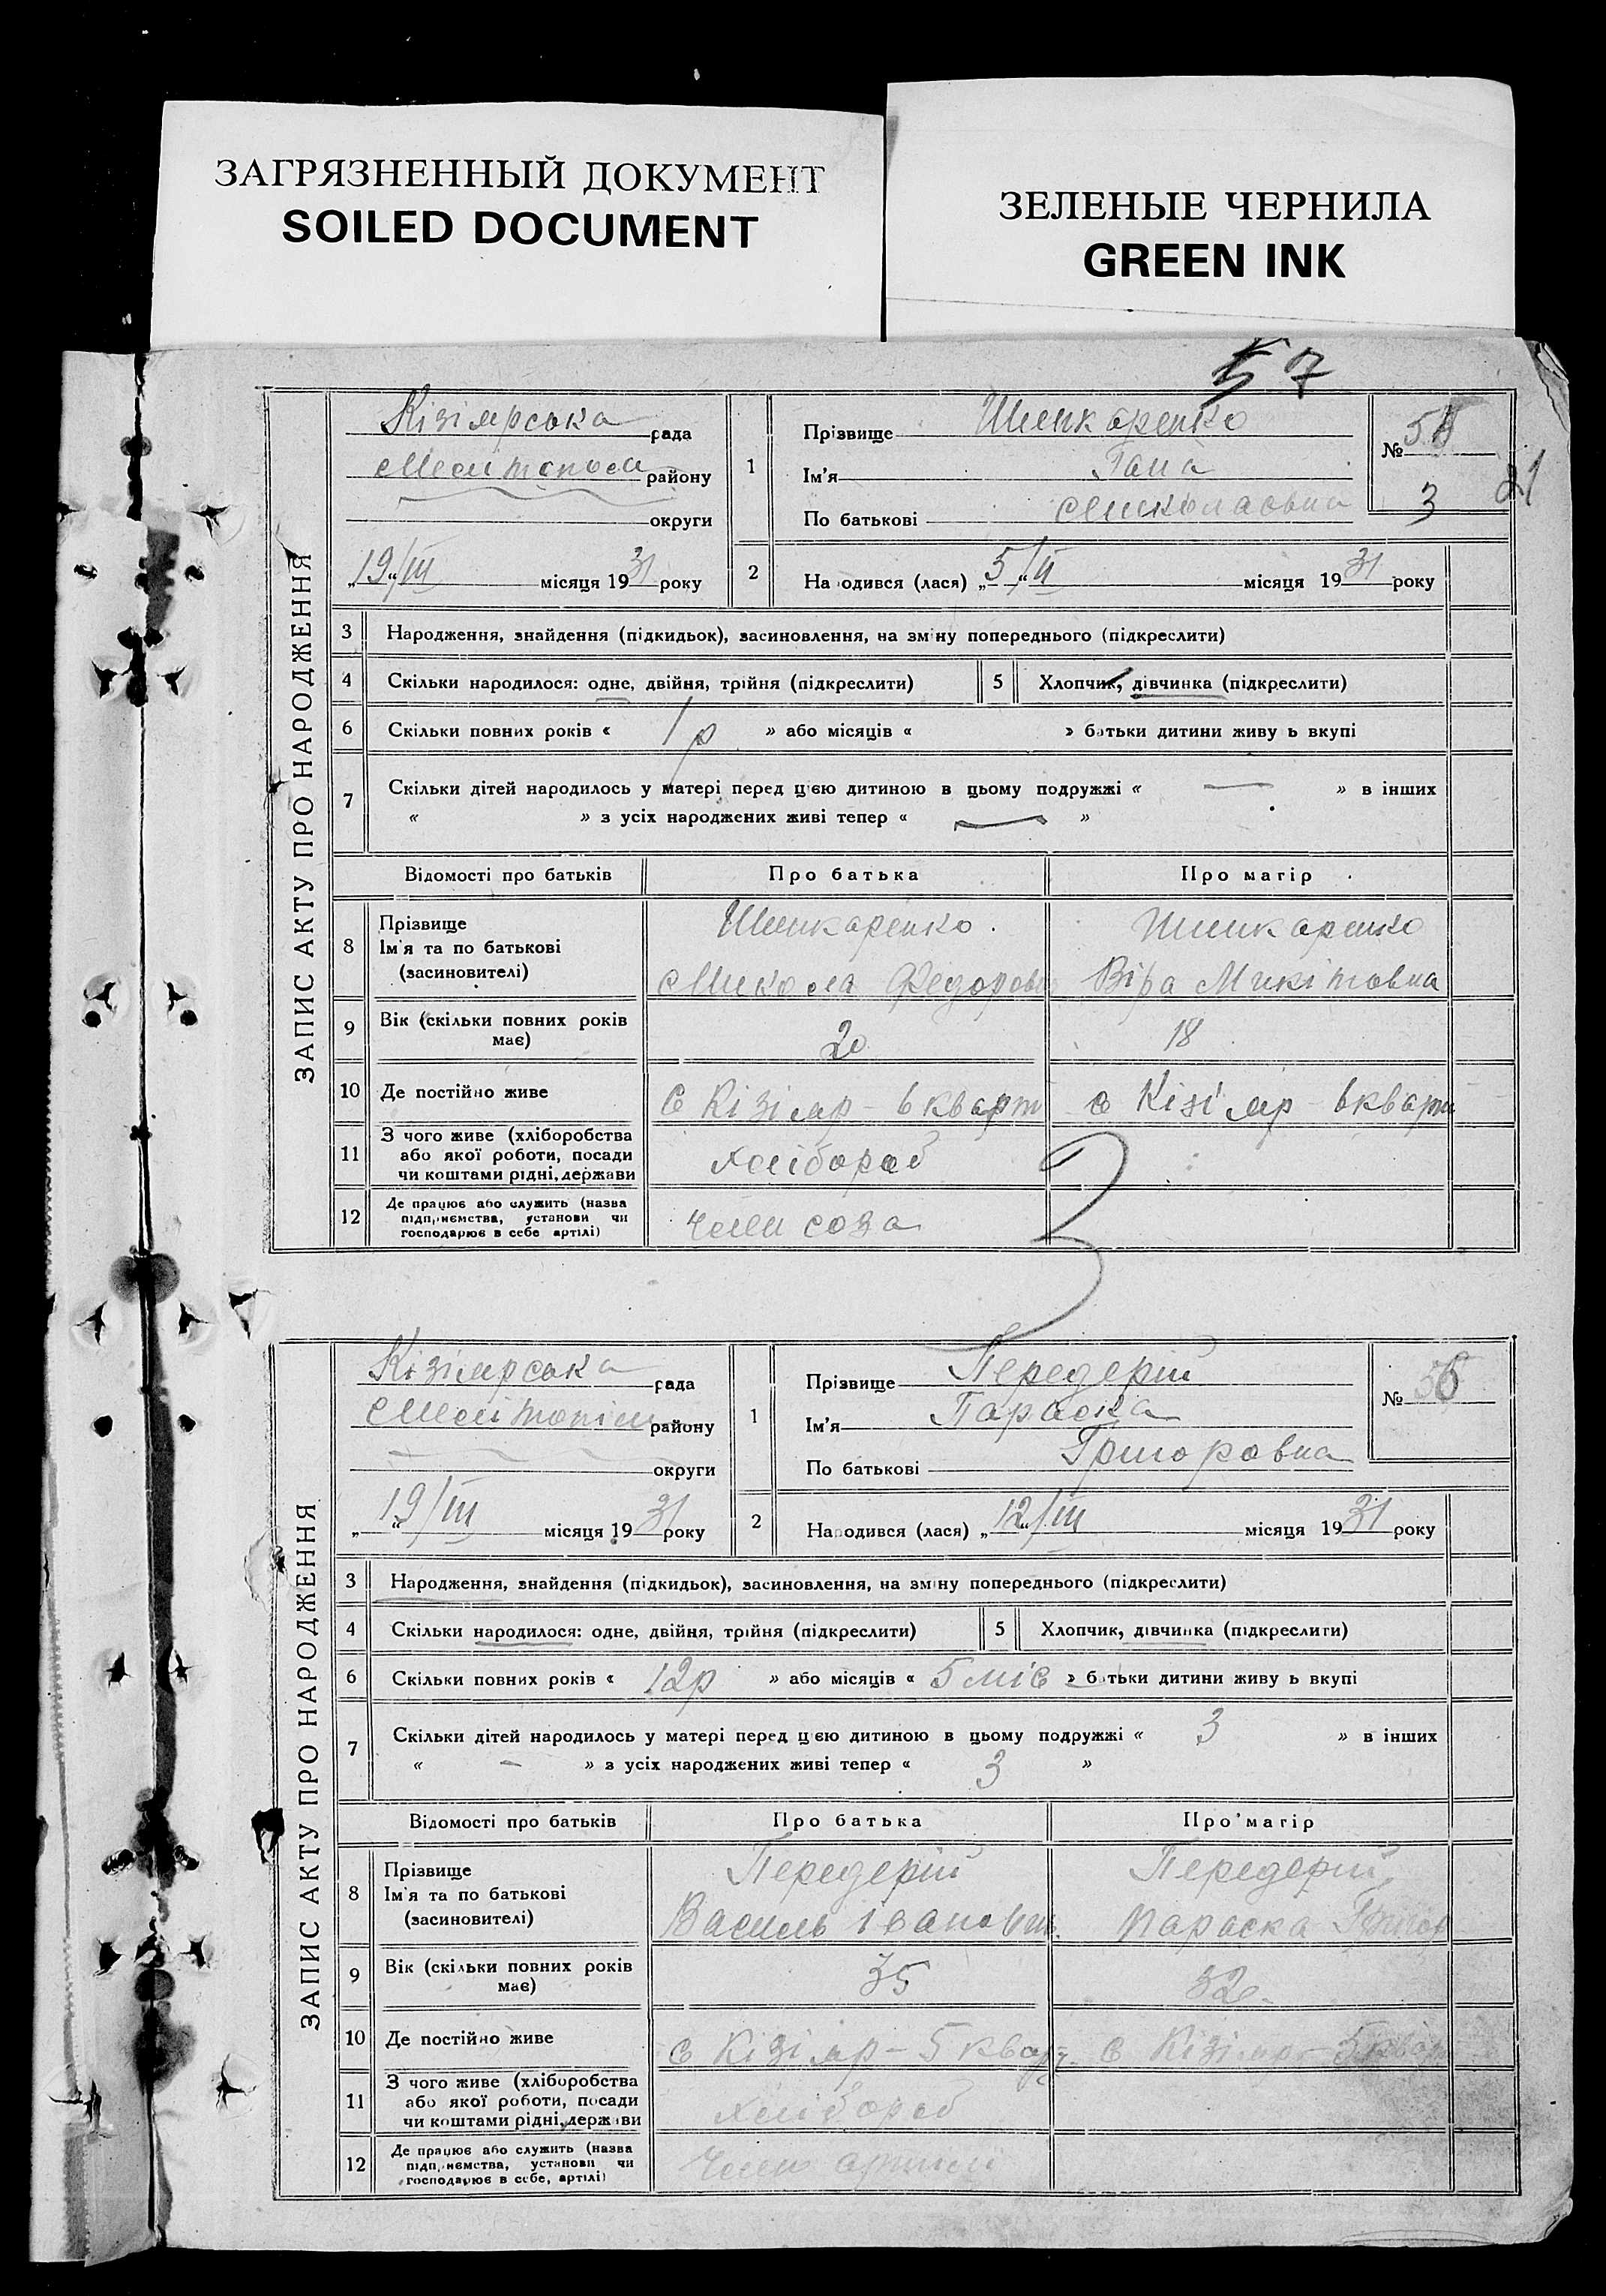 ЗАГРЯЗНЕННЫЙ ДОКУМЕНТ
SOILED DOCUMENT
ЗЕЛЕНЫЕ ЧЕРНИЛА
GREEN INK
57
ЗАПИС АКТУ ПРО НАРОДЖЕННЯ
Кізіярська рада
району
округи
„19“/III місяця 1931 року
1
Прізвище Шинкаренко
Ім'я Гана
По батькові Миколаовна
№
3
21
2
На одився (лася) „5“/II місяця 1931 року
3 Народження, знайдення (підкидьок), засиновлення, на зміну попереднього (підкреслити)
4 Скільки народилося: одне, двійня, трійня (підкреслити)
5 Хлопчик, дівчинка (підкреслити)
6 Скільки повних років « 1 р » або місяців « » батьки дитини живу ь вкупі
7 Скільки дітей народилось у матері перед цією дитиною в цьому подружжі « — » в інших
« » з усіх народжених живі тепер « — »
Відомості про батьків Про батька Про матір
8 Прізвище
Ім'я та по батькові
(засиновителі)
Шинкаренко
Микола Федорови
Шинкаренко
Віра Микітовна
9 Вік (скільки повних років має) 20 18
10 Де постійно живе С Кізіяр - 6 кварт с Кізіяр 6 кварт
11 З чого живе (хліборобства
або якої роботи, посади
чи коштами рідні, держави
хлібороб
12 Де працює або служить (назва
підприємства, установи чи
господарює в себе артілі)
член соза
ЗАПИС АКТУ ПРО НАРОДЖЕННЯ
Кізіярська рада
району
округи
„19“/III місяця 1931 року
1
Прізвище Передерій
Ім'я Параска
По батькові Григоровна
№
2
Народився (лася) „12“/III місяця 1931 року
3 Народження, знайдення (підкидьок), засиновлення, на зміну попереднього (підкреслити)
4 Скільки народилося: одне, двійня, трійня (підкреслити)
5 Хлопчик, дівчинка (підкреслити)
6 Скільки повних років « 12р » або місяців « 5 міс » батьки дитини живу ь вкупі
7 Скільки дітей народилось у матері перед цією дитиною в цьому подружжі « 3 » в інших
« – » з усіх народжених живі тепер « 3 »
Відомості про батьків Про батька Про матір
8 Прізвище
Ім'я та по батькові
(засиновителі)
Передерій
Василь Іванович
Передерій
Параска Григор
9 Вік (скільки повних років має) 35 32
10 Де постійно живе с Кізіяр – 5 кварт с Кізіяр 5 квар
11 З чого живе (хліборобства
або якої роботи, посади
чи коштами рідні, держави
хлібороб
12 Де працює або служить (назва
підприємства, установи чи
господарює в себе, артілі)
Член артілі